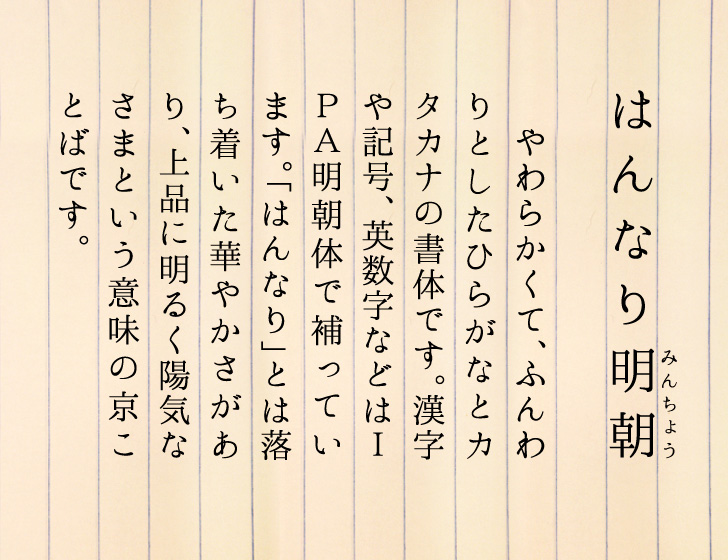 はんなり明朝
みんちょう
やわらかくて、ふんわ
りとしたひらがなとカ
タカナの書体です。漢字
や記号、英数字などはI
PA明朝体で補ってい
ます。「はんなり」とは落
ち着いた華やかさがあ
り、上品に明るく陽気な
さまという意味の京こ
とばです。